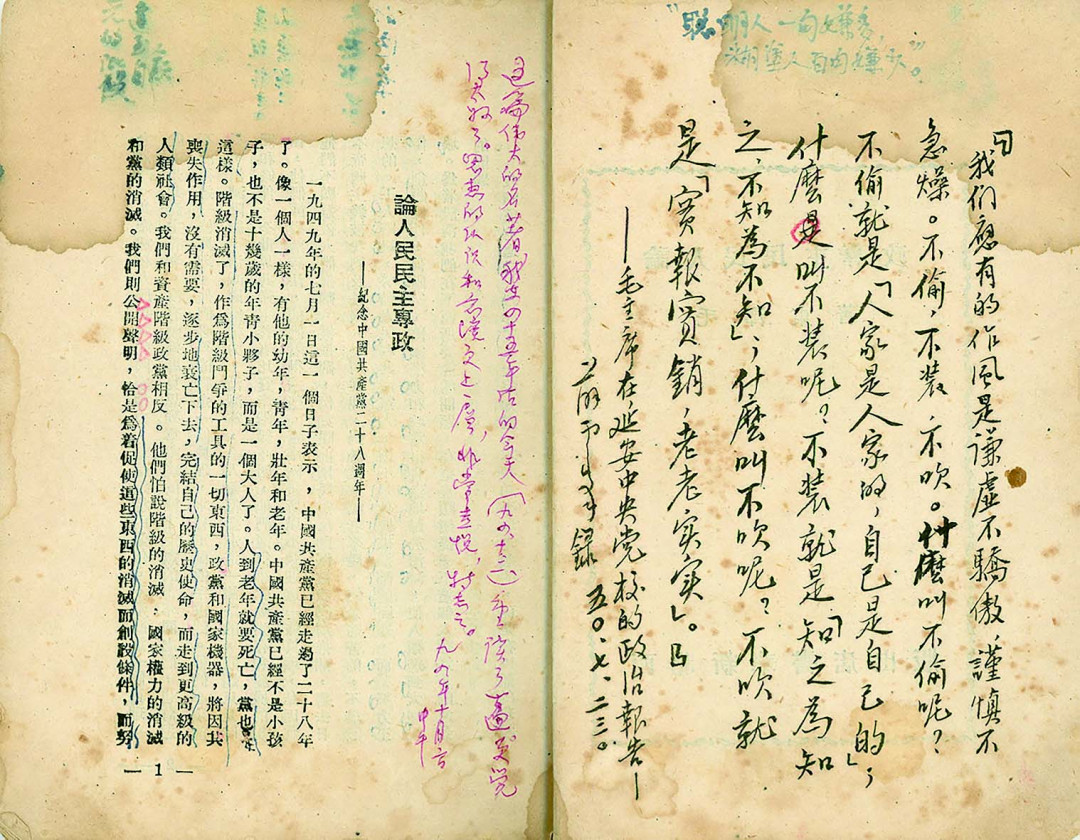 “聪明人一句嫌多，
糊塗人百句嫌少。”
「我们應有的作风是谦虚不驕傲，謹慎不
急燥。不偷，不装，不吹。什麽叫不偷呢？
不偷就是「人家是人家的，自己是自己的」；
什麽是叫不装呢？不装就是「知之為知
之，不知為不知」；什麽叫不吹呢？不吹就
是「實報實銷，老老实实」。」
——毛主席在延安中央党校的政治報告——
錄 五〇.七.二三。
這篇伟大的名著，我在四十五年后的今天重读了一遍，觉
得太好了。思想的认识和意境更上一层，非常喜悦，特志之。
中午
論人民民主專政
——紀念中國共產黨二十八週年——
一九四九年的七月一日這一個日子表示，中國共產黨已經走過了二十八年
了。像一個人一樣，有他的幼年，青年，壯年和老年。中國共產黨已經不是小孩
子，也不是十幾歲的年青小夥子，而是一個大人了。人到老年就要死亡，黨也
這樣。階級消滅了，作爲階級鬥爭的工具的一切東西，政黨和國家機器，將因其
喪失作用，沒有需要，逐步地衰亡下去，完結自己的歷史使命，而走到更高級的
人類社會。我們和資產階級政黨相反。他們怕說階級的消滅，國家權力的消滅
和黨的消滅。我們則公開聲明，恰是爲着促使這些東西的消滅而創設條件，而努
— 1 —